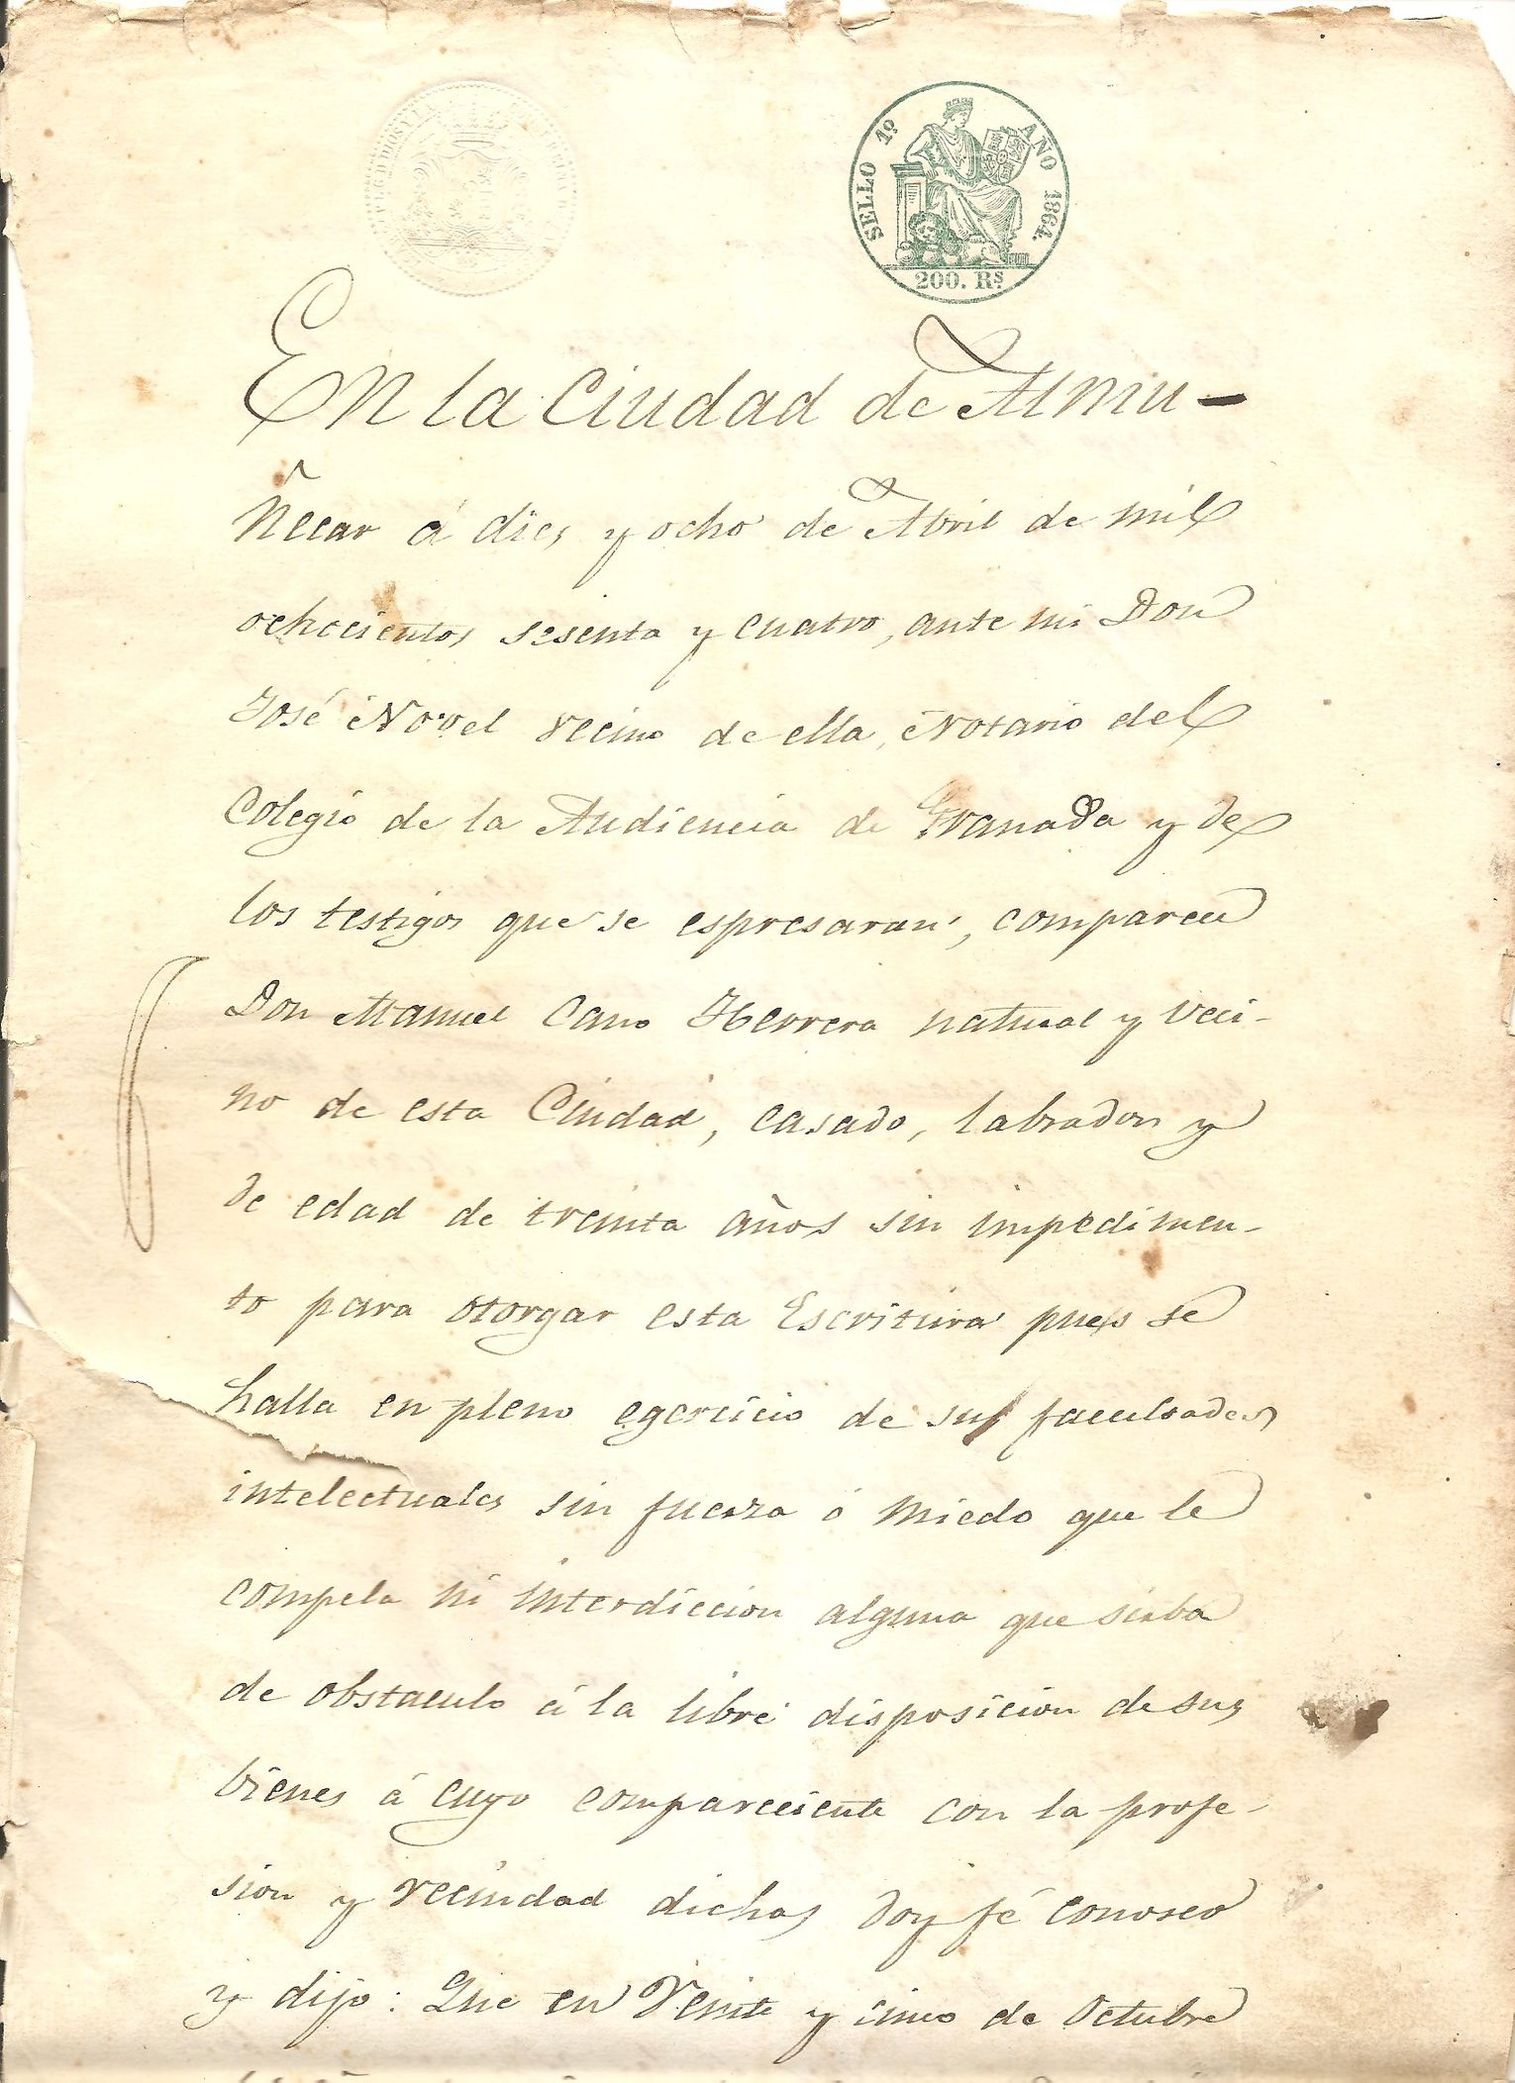 SELLO 1º AÑO 1864.
200. Rs.
En la Ciudad de Almu-
ñecar á dies y ocho de Abril de mil
ochocientos sesenta y cuatro, ante mi Don
José Novel vecino de ella, Notario del
Colegio de la Audiencia de Granada y de
los testigos que se espresaran, comparece
Don Manuel Cano Herrera natural y veci-
no de esta Ciudad, casado, labrador y
de edad de treinta años sin impedimen-
to para otorgar esta Escritura pues se
halla en pleno egercicio de sus facultades
intelectuales sin fuerza ó miedo que le
compela ni interdiccion alguna que sirba
de obstaculo á la libre disposicion de sus
bienes á cuyo compareciente con la profe-
sion y vecindad dichas doy fé conosco
y dijo: Que en Veinte y cinco de Octubre